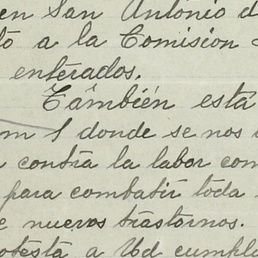 en San Antonio d
to a la Comisión
enterados.
También esta
m 1 donde se nos
contra la labor com
para combatir toda
e nuevos trastornos.
otesta a Ud cumpla